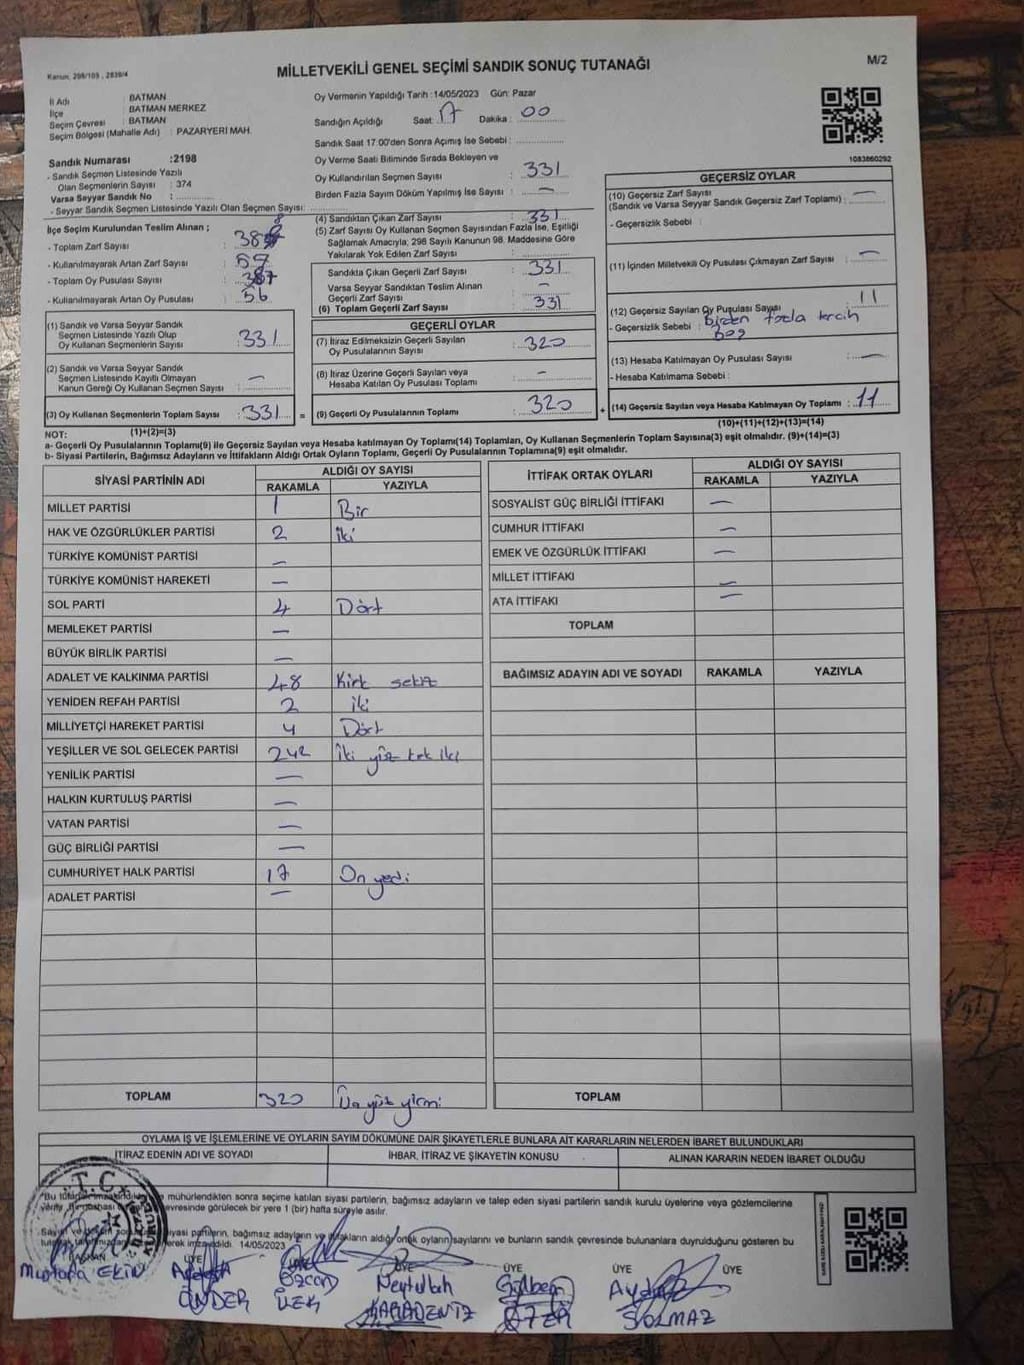 Kanun, 298/105 , 2839/4
MİLLETVEKİLİ GENEL SEÇİMİ SANDIK SONUÇ TUTANAĞI
M/2
İl Adı : BATMAN
İlçe : BATMAN MERKEZ
Seçim Çevresi : BATMAN
Seçim Bölgesi (Mahalle Adı) : PAZARYERİ MAH.
Sandık Numarası :2198
- Sandık Seçmen Listesinde Yazılı
Olan Seçmenlerin Sayısı : 374
Varsa Seyyar Sandık No :
- Seyyar Sandık Seçmen Listesinde Yazılı Olan Seçmen Sayısı:
Oy Vermenin Yapıldığı Tarih :14/05/2023 Gün: Pazar
Sandığın Açıldığı Saat: 17 Dakika : 00
Sandık Saat 17.00'den Sonra Açımış İse Sebebi :
Oy Verme Saati Bitiminde Sırada Bekleyen ve
Oy Kullandırılan Seçmen Sayısı : 331
Birden Fazla Sayım Döküm Yapılmış İse Sayısı : —
1083860292
İlçe Seçim Kurulundan Teslim Alınan ;
- Toplam Zarf Sayısı : 388
- Kullanılmayarak Artan Zarf Sayısı : 57
- Toplam Oy Pusulası Sayısı : 387
- Kullanılmayarak Artan Oy Pusulası : 56
(1) Sandık ve Varsa Seyyar Sandık
Seçmen Listesinde Yazılı Olup
Oy Kullanan Seçmenlerin Sayısı : 331
(2) Sandık ve Varsa Seyyar Sandık
Seçmen Listesinde Kayıtlı Olmayan
Kanun Gereği Oy Kullanan Seçmen Sayısı : —
(3) Oy Kullanan Seçmenlerin Toplam Sayısı : 331 =
(1)+(2)=(3)
(4) Sandıktan Çıkan Zarf Sayısı : 331
(5) Zarf Sayısı Oy Kullanan Seçmen Sayısından Fazla İse, Eşitliği
Sağlamak Amacıyla; 298 Sayılı Kanunun 98. Maddesine Göre
Yakılarak Yok Edilen Zarf Sayısı :
Sandıkta Çıkan Geçerli Zarf Sayısı : 331
Varsa Seyyar Sandıktan Teslim Alınan
Geçerli Zarf Sayısı : —
(6) Toplam Geçerli Zarf Sayısı : 331
GEÇERLİ OYLAR
(7) İtiraz Edilmeksizin Geçerli Sayılan
Oy Pusulalarının Sayısı : 320
(8) İtiraz Üzerine Geçerli Sayılan veya
Hesaba Katılan Oy Pusulası Toplamı : —
(9) Geçerli Oy Pusulalarının Toplamı : 320 +
GEÇERSİZ OYLAR
(10) Geçersiz Zarf Sayısı
(Sandık ve Varsa Seyyar Sandık Geçersiz Zarf Toplamı) : —
- Geçersizlik Sebebi :
(11) İçinden Milletvekili Oy Pusulası Çıkmayan Zarf Sayısı : —
(12) Geçersiz Sayılan Oy Pusulası Sayısı : 11
- Geçersizlik Sebebi : birden fazla tercih
boş
(13) Hesaba Katılmayan Oy Pusulası Sayısı : —
- Hesaba Katılmama Sebebi :
(14) Geçersiz Sayılan veya Hesaba Katılmayan Oy Toplamı : 11
(10)+(11)+(12)+(13)=(14)
NOT:
a- Geçerli Oy Pusulalarının Toplamı(9) ile Geçersiz Sayılan veya Hesaba katılmayan Oy Toplamı(14) Toplamları, Oy Kullanan Seçmenlerin Toplam Sayısına(3) eşit olmalıdır. (9)+(14)=(3)
b- Siyasi Partilerin, Bağımsız Adayların ve İttifakların Aldığı Ortak Oyların Toplamı, Geçerli Oy Pusulalarının Toplamına(9) eşit olmalıdır.
SİYASİ PARTİNİN ADI ALDIĞI OY SAYISI
RAKAMLA YAZIYLA
MİLLET PARTİSİ 1 Bir
HAK VE ÖZGÜRLÜKLER PARTİSİ 2 iki
TÜRKİYE KOMÜNİST PARTİSİ —
TÜRKİYE KOMÜNİST HAREKETİ —
SOL PARTİ 4 Dört
MEMLEKET PARTİSİ —
BÜYÜK BİRLİK PARTİSİ —
ADALET VE KALKINMA PARTİSİ 48 Kırk sekiz
YENİDEN REFAH PARTİSİ 2 iki
MİLLİYETÇİ HAREKET PARTİSİ 4 Dört
YEŞİLLER VE SOL GELECEK PARTİSİ 242 iki yüz kırk iki
YENİLİK PARTİSİ —
HALKIN KURTULUŞ PARTİSİ —
VATAN PARTİSİ —
GÜÇ BİRLİĞİ PARTİSİ —
CUMHURİYET HALK PARTİSİ 17 On yedi
ADALET PARTİSİ —
TOPLAM 320 Üç yüz yirmi
İTTİFAK ORTAK OYLARI ALDIĞI OY SAYISI
RAKAMLA YAZIYLA
SOSYALİST GÜÇ BİRLİĞİ İTTİFAKI —
CUMHUR İTTİFAKI —
EMEK VE ÖZGÜRLÜK İTTİFAKI —
MİLLET İTTİFAKI —
ATA İTTİFAKI —
TOPLAM
BAĞIMSIZ ADAYIN ADI VE SOYADI RAKAMLA YAZIYLA
TOPLAM
OYLAMA İŞ VE İŞLEMLERİNE VE OYLARIN SAYIM DÖKÜMÜNE DAİR ŞİKAYETLERLE BUNLARA AİT KARARLARIN NELERDEN İBARET BULUNDUKLARI
İTİRAZ EDENİN ADI VE SOYADI İHBAR, İTİRAZ VE ŞİKAYETİN KONUSU ALINAN KARARIN NEDEN İBARET OLDUĞU
mühürlendikten sonra seçime katılan siyasi partilerin, bağımsız adayların ve talep eden siyasi partilerin sandık kurulu üyelerine veya gözlemcilerine
çevresinde görülecek bir yere 1 (bir) hafta süreyle asılır.
siyasi partilerin, bağımsız adayların ve ittifakların aldığı ortak oyların sayılarını ve bunların sandık çevresinde bulunanlara duyrulduğunu gösteren bu
14/05/2023
T.C.
BAŞKAN ÜYE ÜYE ÜYE ÜYE ÜYE
Mustafa EKİN
ÖNDER
Özcan
Neytullah
KARADENİZ
Gülbeng
SOLMAZ